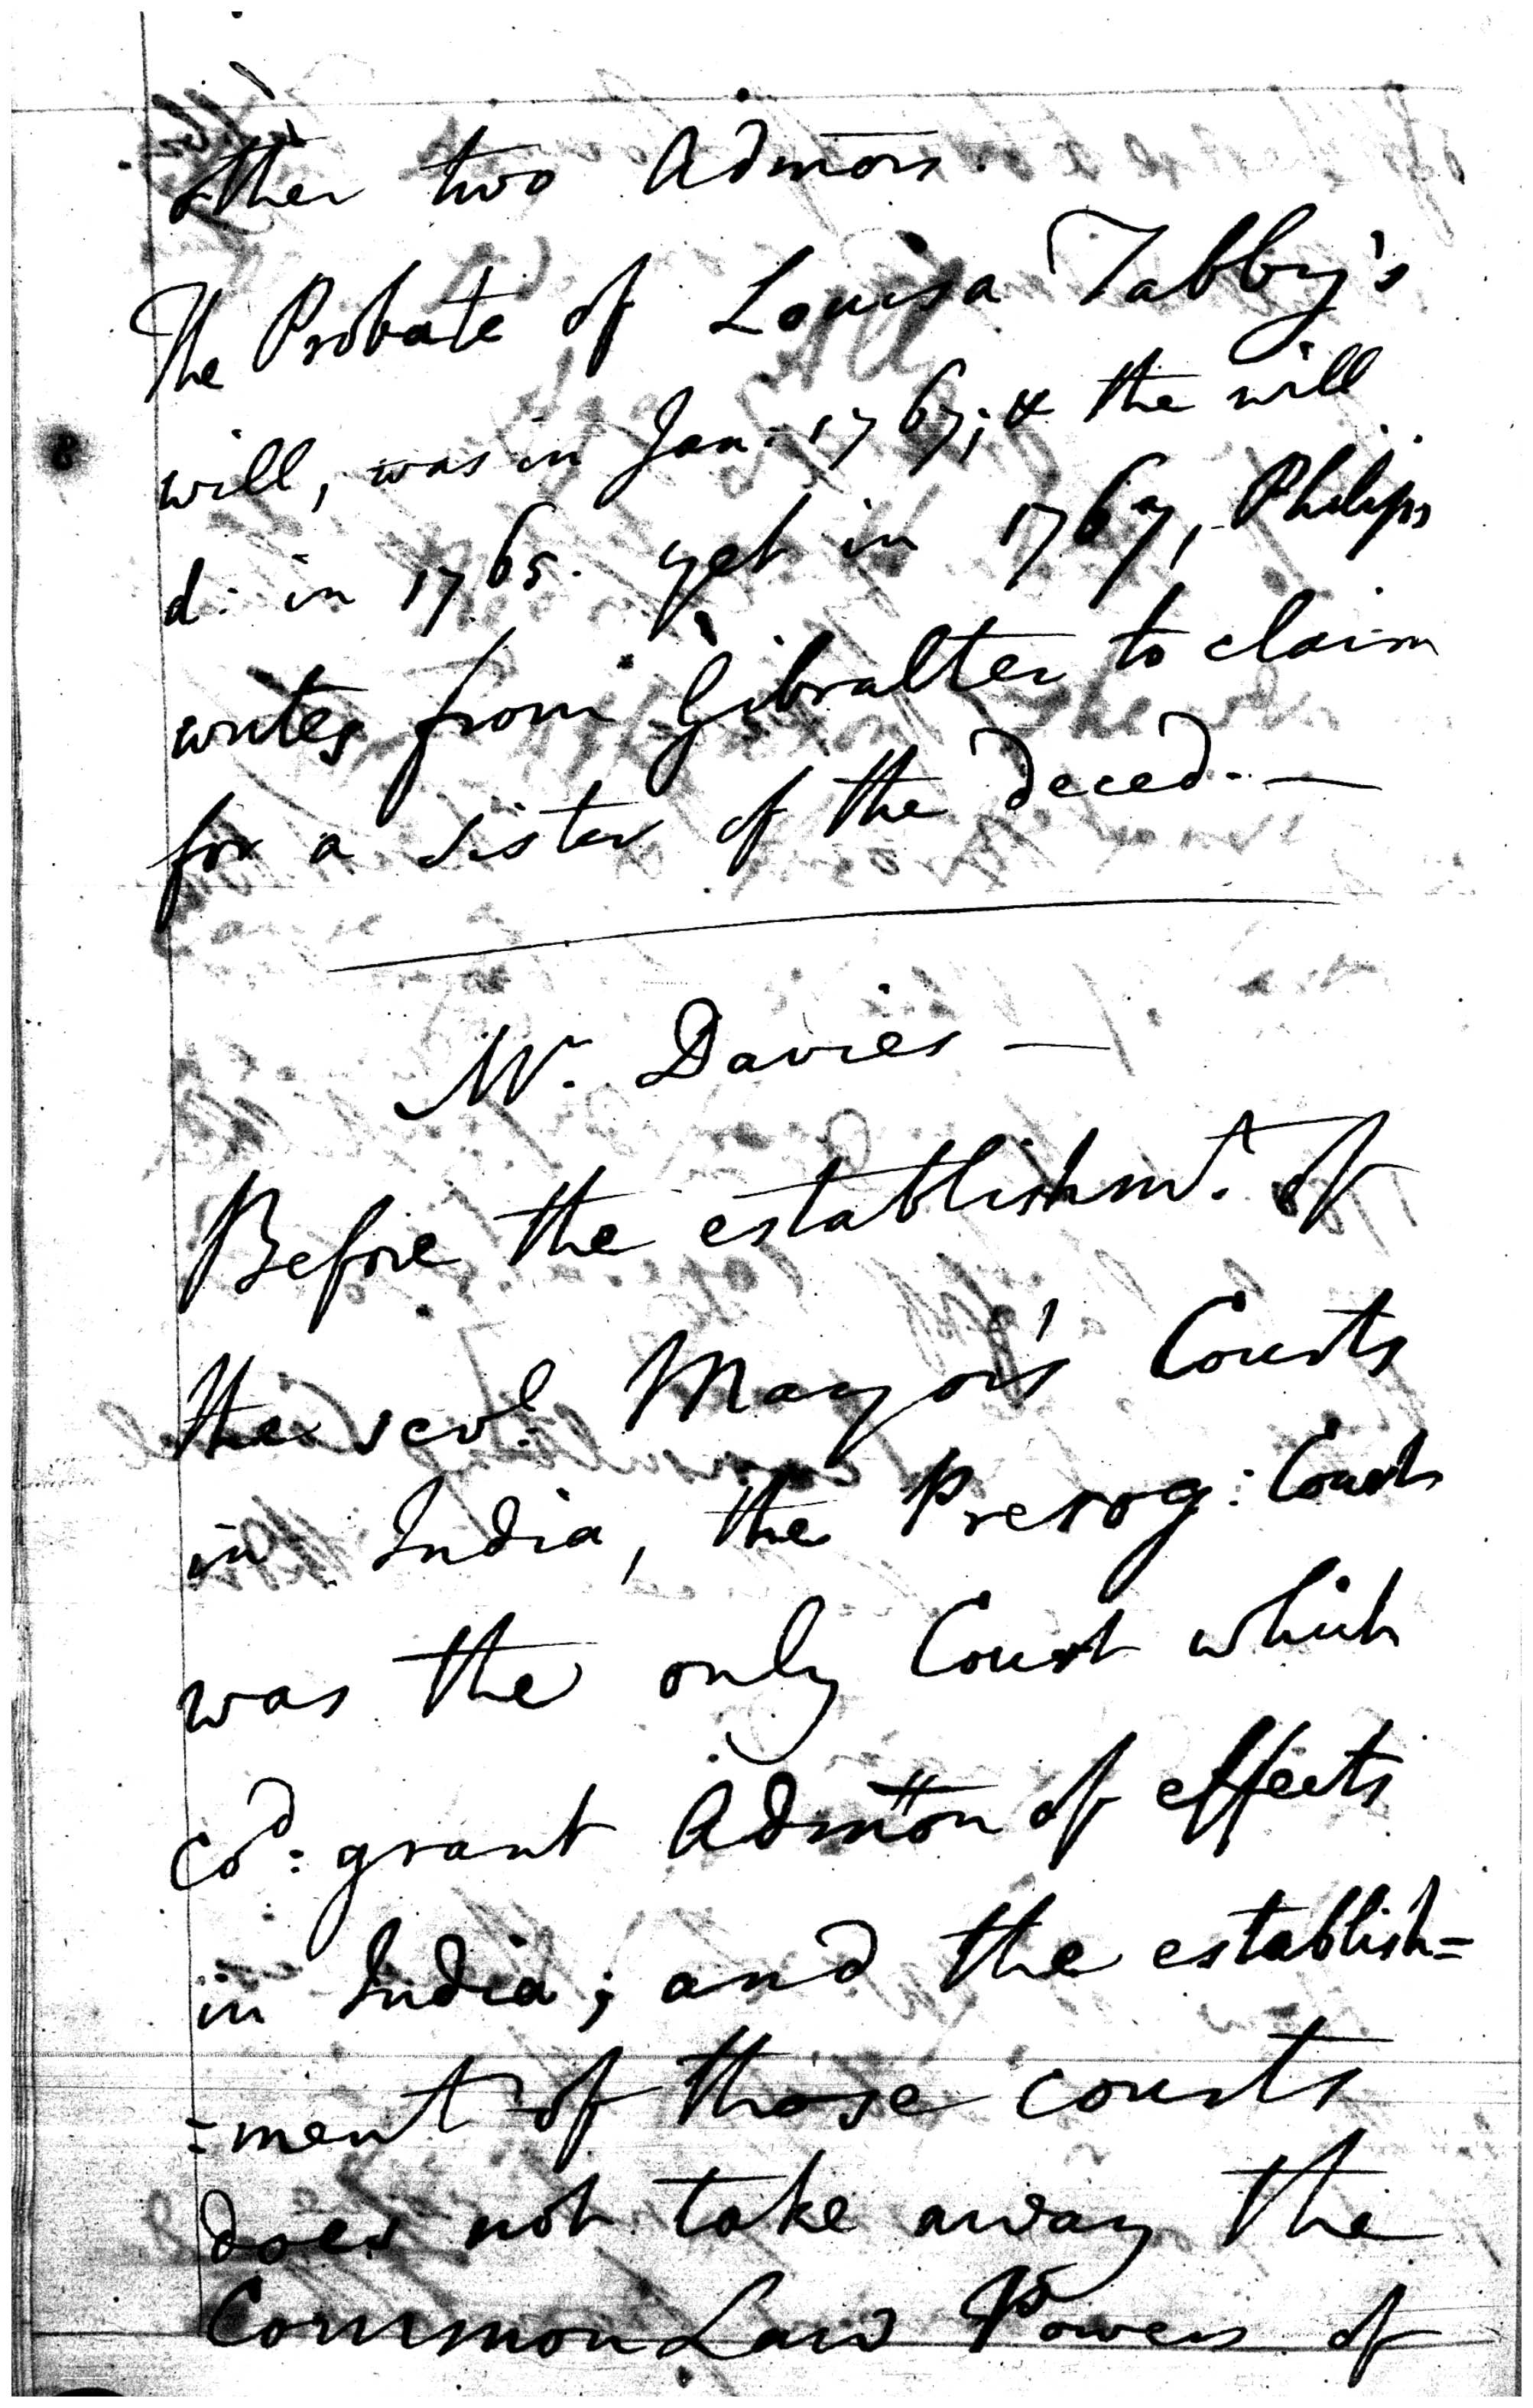 other two Admors.
The Probate of Louisa Tabby's
will, was in Jan. 1767; & the will
d: in 1765. yet in 1767, Philips
writes from Gibralter to claim
for a sister of the deced. —
W. Davies —
Before the establishmt. of
the sevl. Mayor's Courts
in India, the Prerog: Court
was the only Court which
cod: grant Admon of effects
in India; and the establish=
=ment of those courts
does not take away the
Common Law Powers of